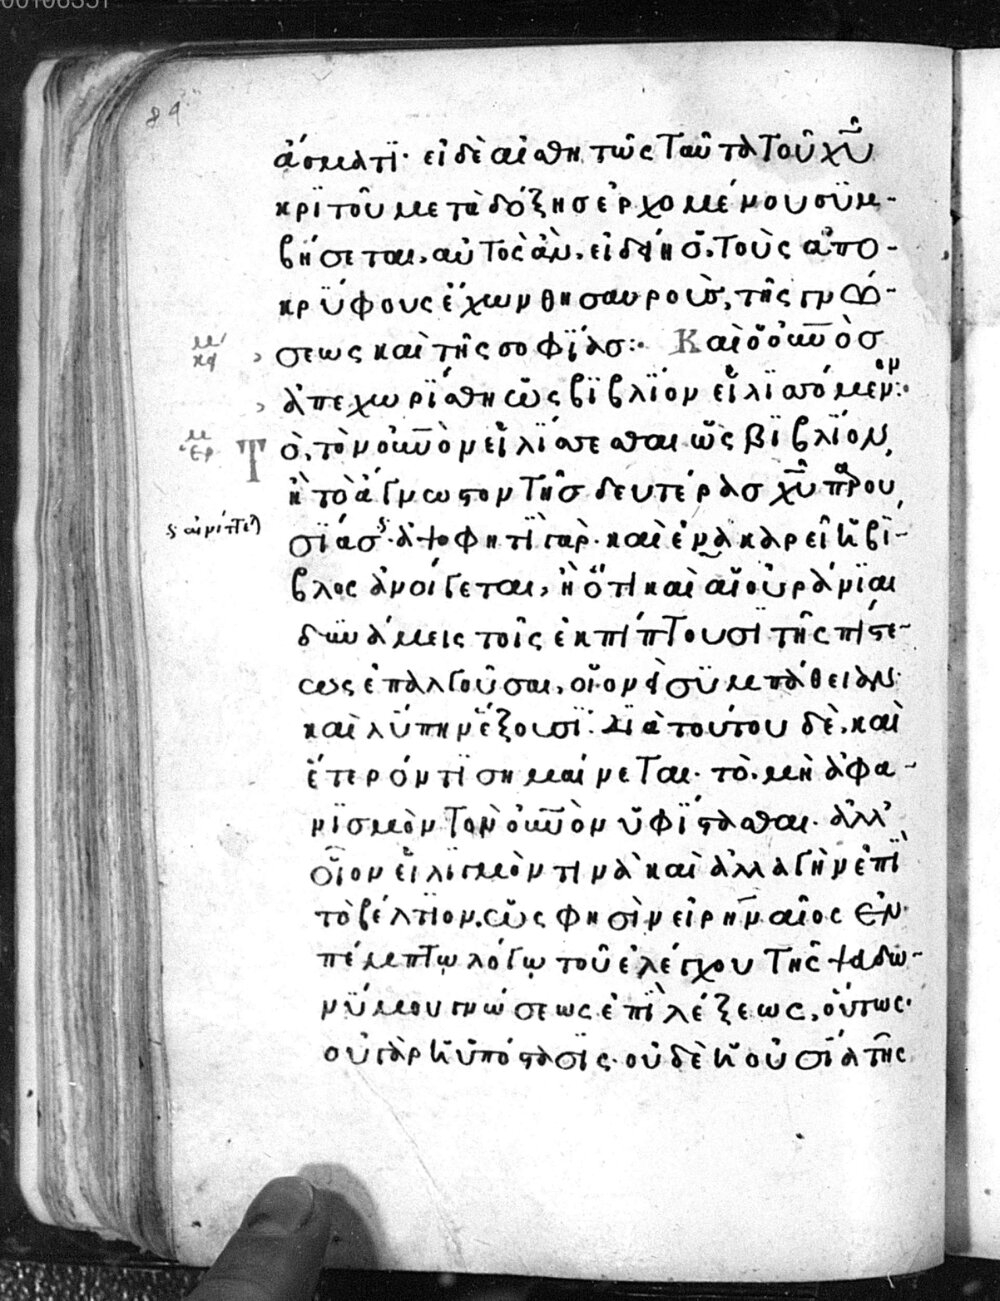 84
ἄσματϊ· εἰ δὲ αἰσθητῶς ταῦτα τοῦ χῦ
κρϊτοῦ μετὰ δόξης ἐρχομένου συμ-
βήσεται, αὐτὸς ἂν εἰδείη ὁ τοὺς ἀπο-
κρύφους ἔχων θησαυροὺς, τῆς γνώ-
σεως καὶ τῆς σοφΐας:· Καὶ ὁ οὐνὸσ
ἀπεχωρΐσθη ὡς βϊβλΐον εἱλισσόμενον:·
Τὸ, τὸν οὐνὸν εἱλΐσσεσθαι ὡς βϊβλΐον,
ἢ τὸ ἄγνωστον τῆσ δευτέρας χῦ παρου
σΐασ· ἀψοφητὶ γὰρ· καὶ ἐν ἀκαρεῖ ἡ βΐ-
βλος ἀνοίγεται, ἢ ὅτι καὶ αἱ οὐράνϊαι
δυνάμεις τοῖς ἐκπίπτουσϊ τῆς πίστε-
ως ἐπαλγοῦσαι, οἱονεὶ συμπάθειαν·
καὶ λύπην ἕξουσϊ. Διὰ τούτου δὲ, καὶ
ἕτερόν τϊ σημαίνεται· τὸ, μὴ ἀφα-
νϊσμὸν τὸν οὐνὸν ὑφΐστασθαι· ἀλλ'
οἷον εἱλιγμὸν τινὰ καὶ ἀλλαγὴν ἐπὶ
τὸ βέλτϊον, ὥς φησὶν εἰρηναῖος ἐν
πέμπτω λόγω τοῦ ἐλέγχου τῆς ψαδω-
νύμου γνώσεως ἐπὶ λέξεως, οὕτως·
οὐ γὰρ ἡ ὑπόστασϊς· οὐδὲ ἡ οὐσία τῆς